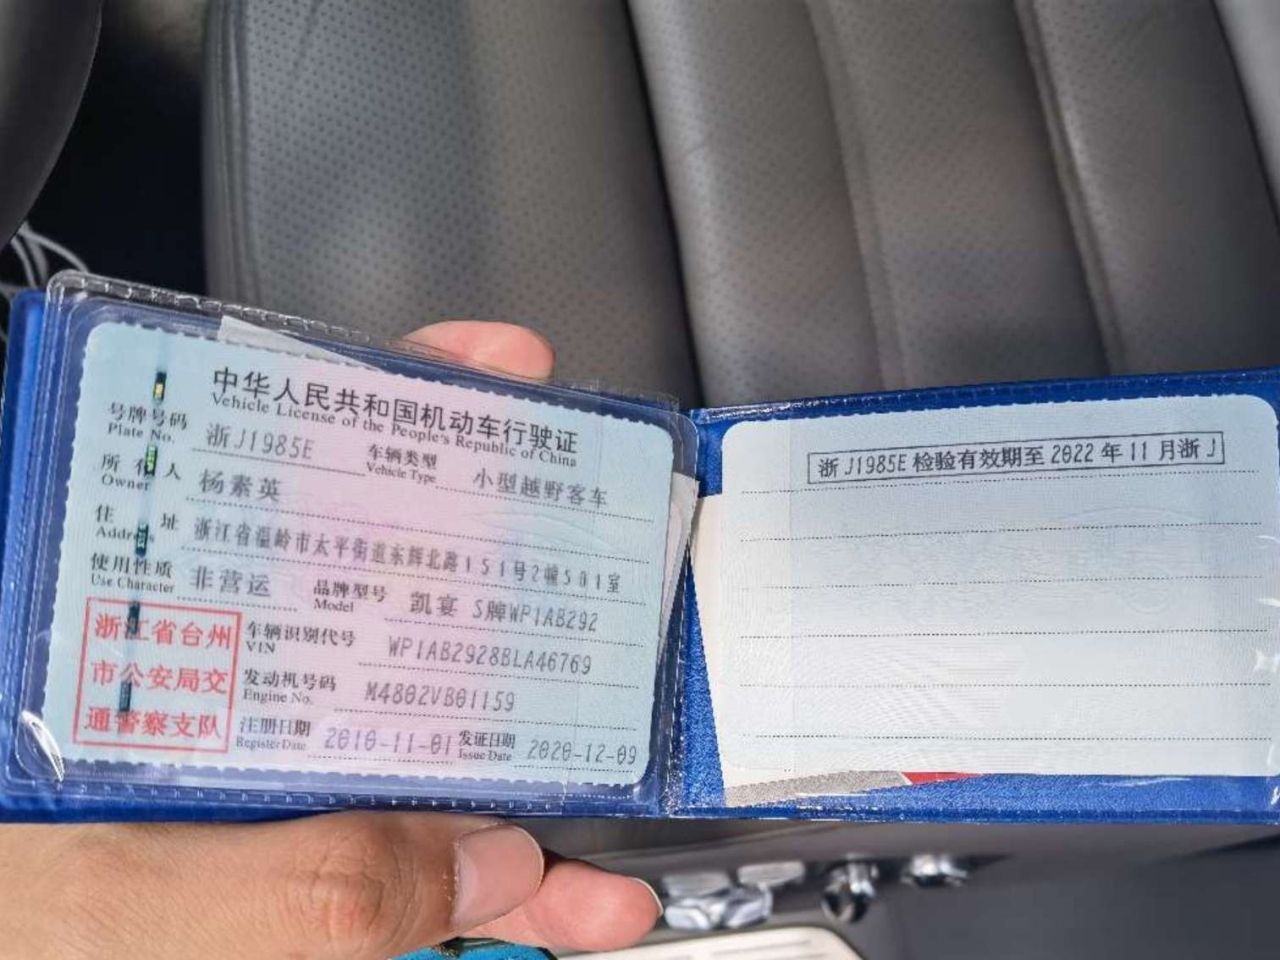 中华人民共和国机动车行驶证
Vehicle License of the People's Republic of China
号牌号码 浙J1985E 车辆类型 小型越野客车
Plate No. Vehicle Type
所有人 杨素英
Owner
住址 浙江省温岭市太平街道东辉北路151号2幢501室
Address
使用性质 非营运 品牌型号 凯宴 S牌WP1AB292
Use Character Model
浙江省台州
市公安局交
通警察支队
车辆识别代号 WP1AB2928BLA46769
VIN
发动机号码 M4802VB01159
Engine No.
注册日期 2010-11-01 发证日期 2020-12-09
Register Date Issue Date
浙J1985E检验有效期至2022年11月浙J